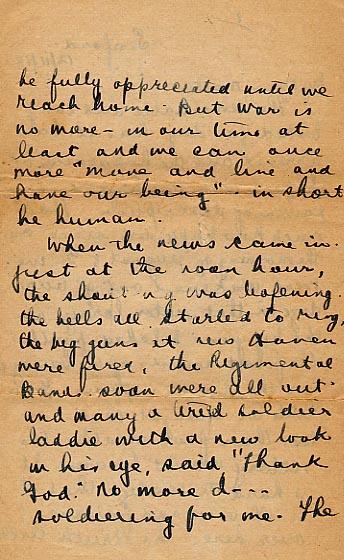 be fully appreciated until we
reach home. But war is
no more - in our time at
least and we can once
more "move and live and
have our being" - in short
be human.
When the news came in
just at the noon hour,
the shouting was deafening.
the bells all started to ring,
the big guns at New Haven
were fired, the Regimental
Bands soon were all out
and many a tired soldier
laddie with a new look
in his eye, said "Thank
God." No more d---
soldiering for me. The